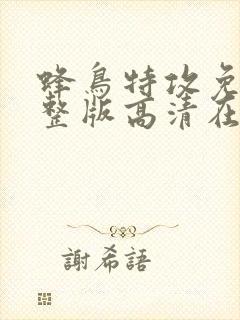 蜂鳥特攻免
整版高清在
謝希語